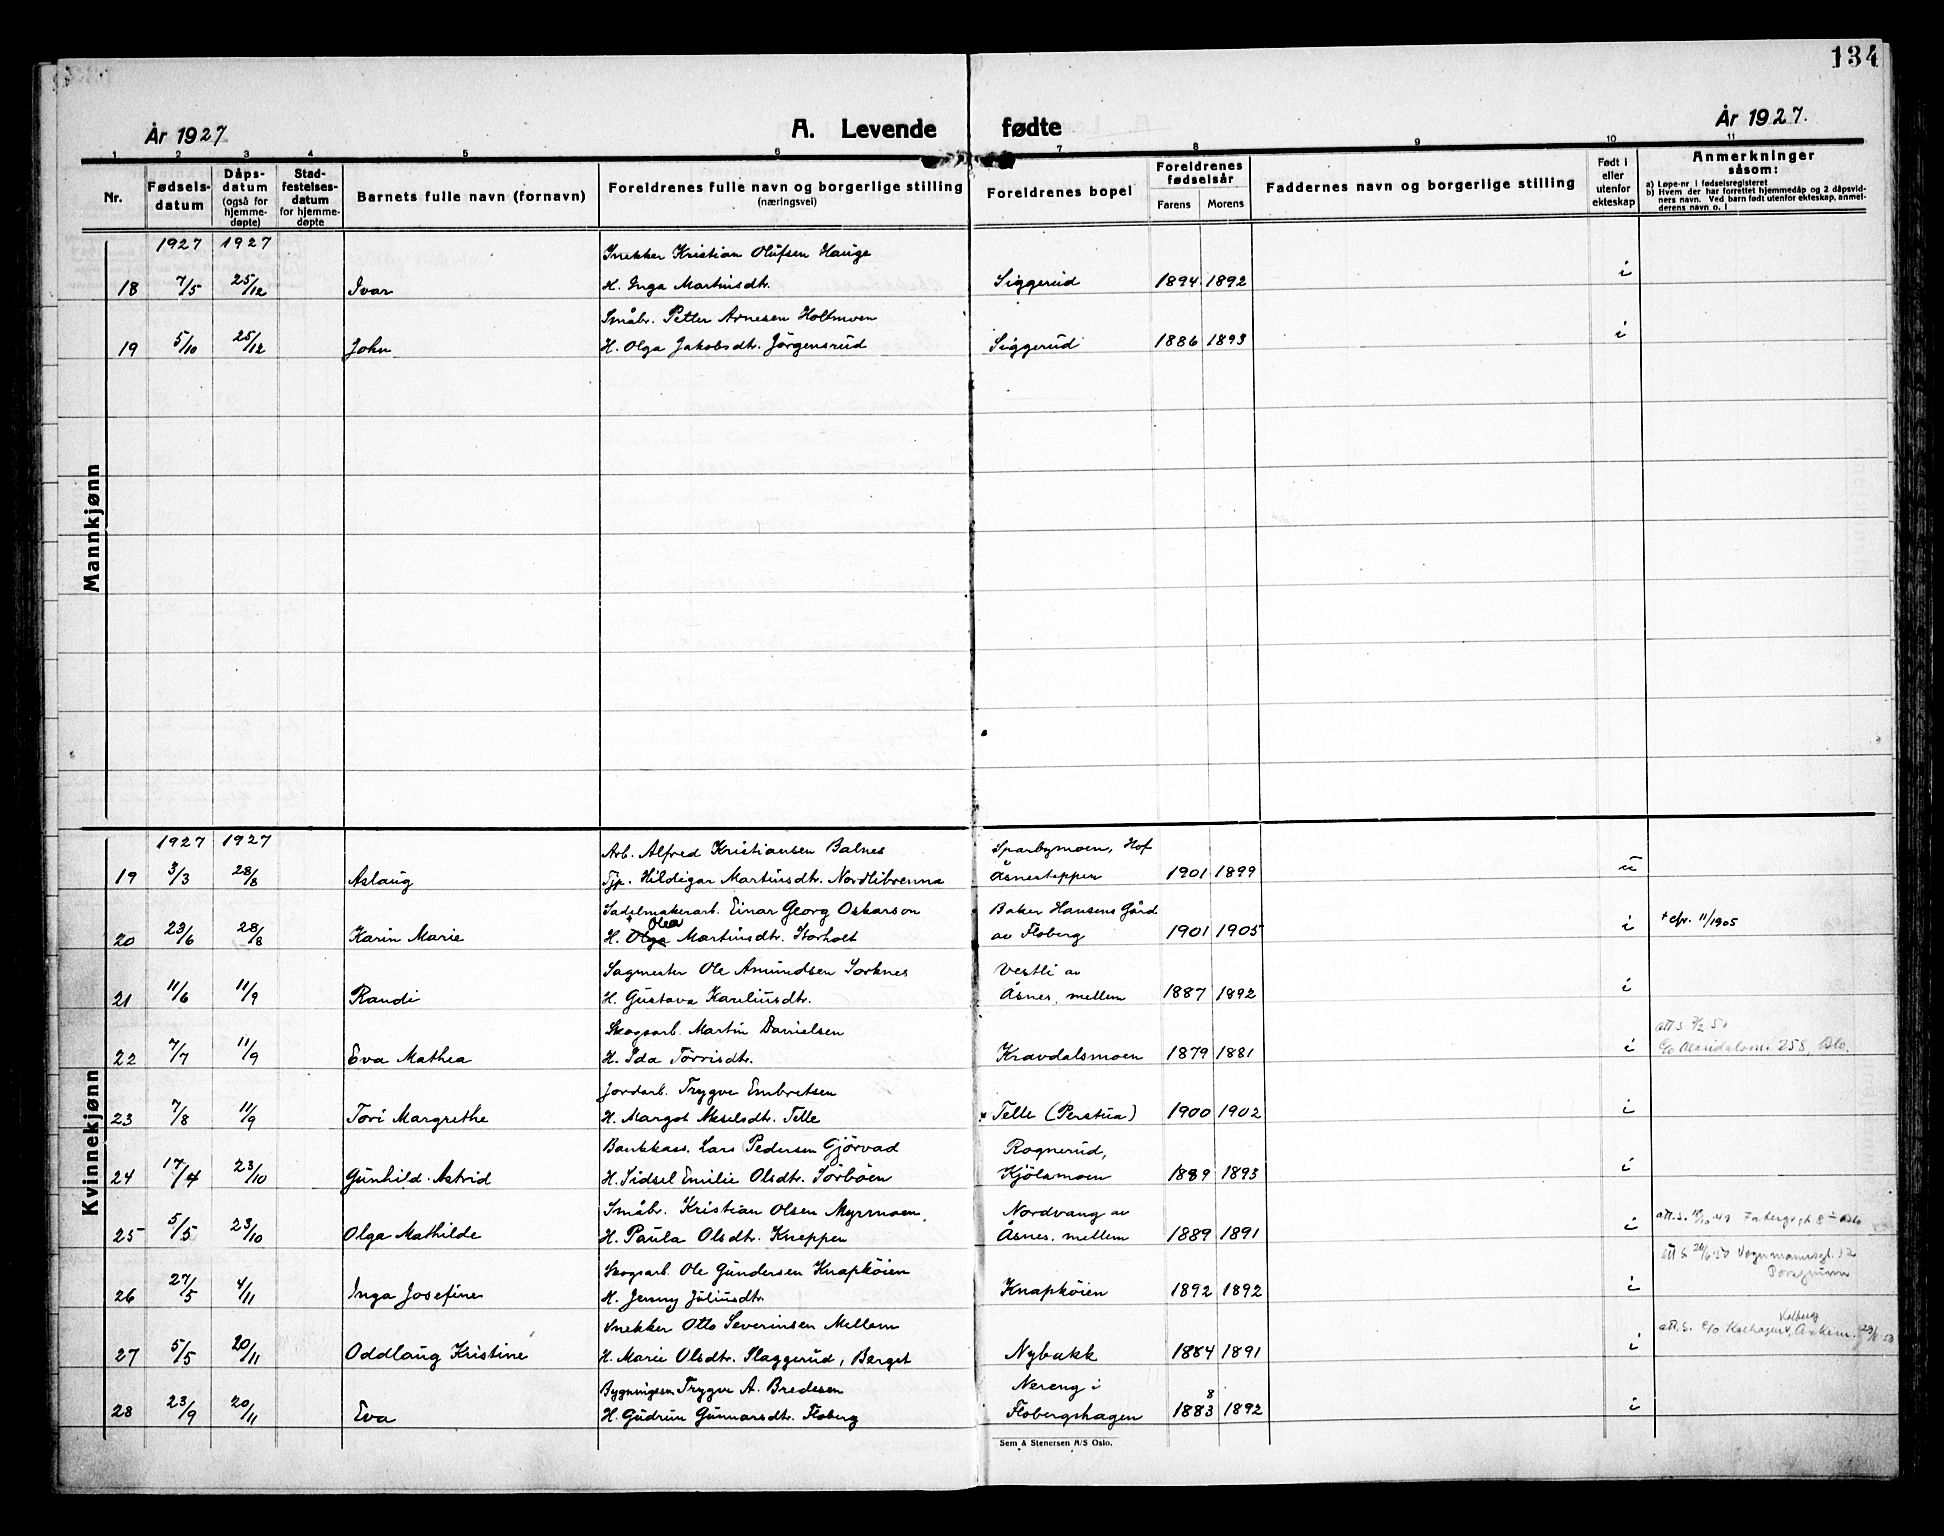 134
År 1927
A. Levende fødte
År 1927.
1 2 3 4 5 6 7 8 9 10 11
Nr.
Fødsels-
datum
Dåps-
datum
(også for
hjemme-
døpte)
Stad-
festelses-
datum
for hjemme-
døpte
Barnets fulle navn (fornavn)
Foreldrenes fulle navn og borgerlige stilling
(næringsvei)
Foreldrenes bopel
Foreldrenes
fødselsår
Farens Morens
Faddernes navn og borgerlige stilling
Født i
eller
utenfor
ekteskap
Anmerkninger
såsom:
a) Løpe-nr. i fødselsregisteret
b) Hvem der har forrettet hjemmedåp og 2 dåpsvid-
ners navn. Ved barn født utenfor ekteskap, anmel-
derens navn o. l
Mannkjønn
1927 1927
Snekker Kristian Olufsen Hauge
18 7/5 25/12 Ivar H. Inga Martinsdtr. Siggerud 1894 1892 i
Småbr. Petter Arnesen Holtmoen
19 5/10 25/12 John H. Olga Jakobsdtr. Jörgensrud Siggerud 1886 1893 i
Kvinnekjønn
1927 1927
Arb. Alfred Kristiansen Balnes Sparbymoen, Hof
19 3/3 28/8 Aslaug Tjp. Hildigar Martinsdtr. Nordlibrenna Åsnesteppen 1901 1899 u
Sadelmakerarb. Einar Georg Oskarson Baker Hansens Gård
Olea
20 23/6 28/8 Karin Marie H. Olga Martinsdtr. Storholt av Floberg 1901 1905 i + cfr. 11/1905
Sagmester Ole Amundsen Sorknes Vestli av
21 11/6 11/9 Randi H. Gustava Kareliusdtr. Åsnes, mellem 1887 1892 i
Skogsarb. Martin Danielsen att.s. 7/2 50
22 7/7 11/9 Eva Mathea H. Ida Torrisdtr. Kravdalsmoen 1879 1881 i 258, Oslo.
Jordarb. Trygve Embretsen
23 7/8 11/9 Tori Margrethe H. Margot Akselsdtr. Telle Telle (Perstua) 1900 1902 i
Bankkass. Lars Pedersen Gjörvad Rognerud,
24 17/4 23/10 Gunhild Astrid H. Sidsel Emilie Olsdtr. Sörböen Kjölsmoen 1889 1893 i
Småbr. Kristian Olsen Myrmoen Nordvang av
25 5/5 23/10 Olga Mathilde H. Paula Olsdtr. Kneppen Åsnes, mellem 1889 1891 i att.s.
Skogsarb. Ole Gundersen Knapköien att s. Vognmannsgt. 12
Porsgrunn
26 27/5 4/11 Inga Josefine H. Jenny Juliusdtr. Knapköien 1892 1892 i
Snekker Otto Severinsen Mellem att.s. c/o Askim
27 5/5 20/11 Oddlaug Kristine H. Marie Olsdtr. Flaggerud, Berget Nybakk 1884 1891 i
Bygningsm Trygve A. Bredesen Nereng i
8
28 23/9 20/11 Eva H. Gudrun Gunnarsdtr. Floberg Flobergshagen 1883 1892 i
Sem & Stenersen A/S Oslo.